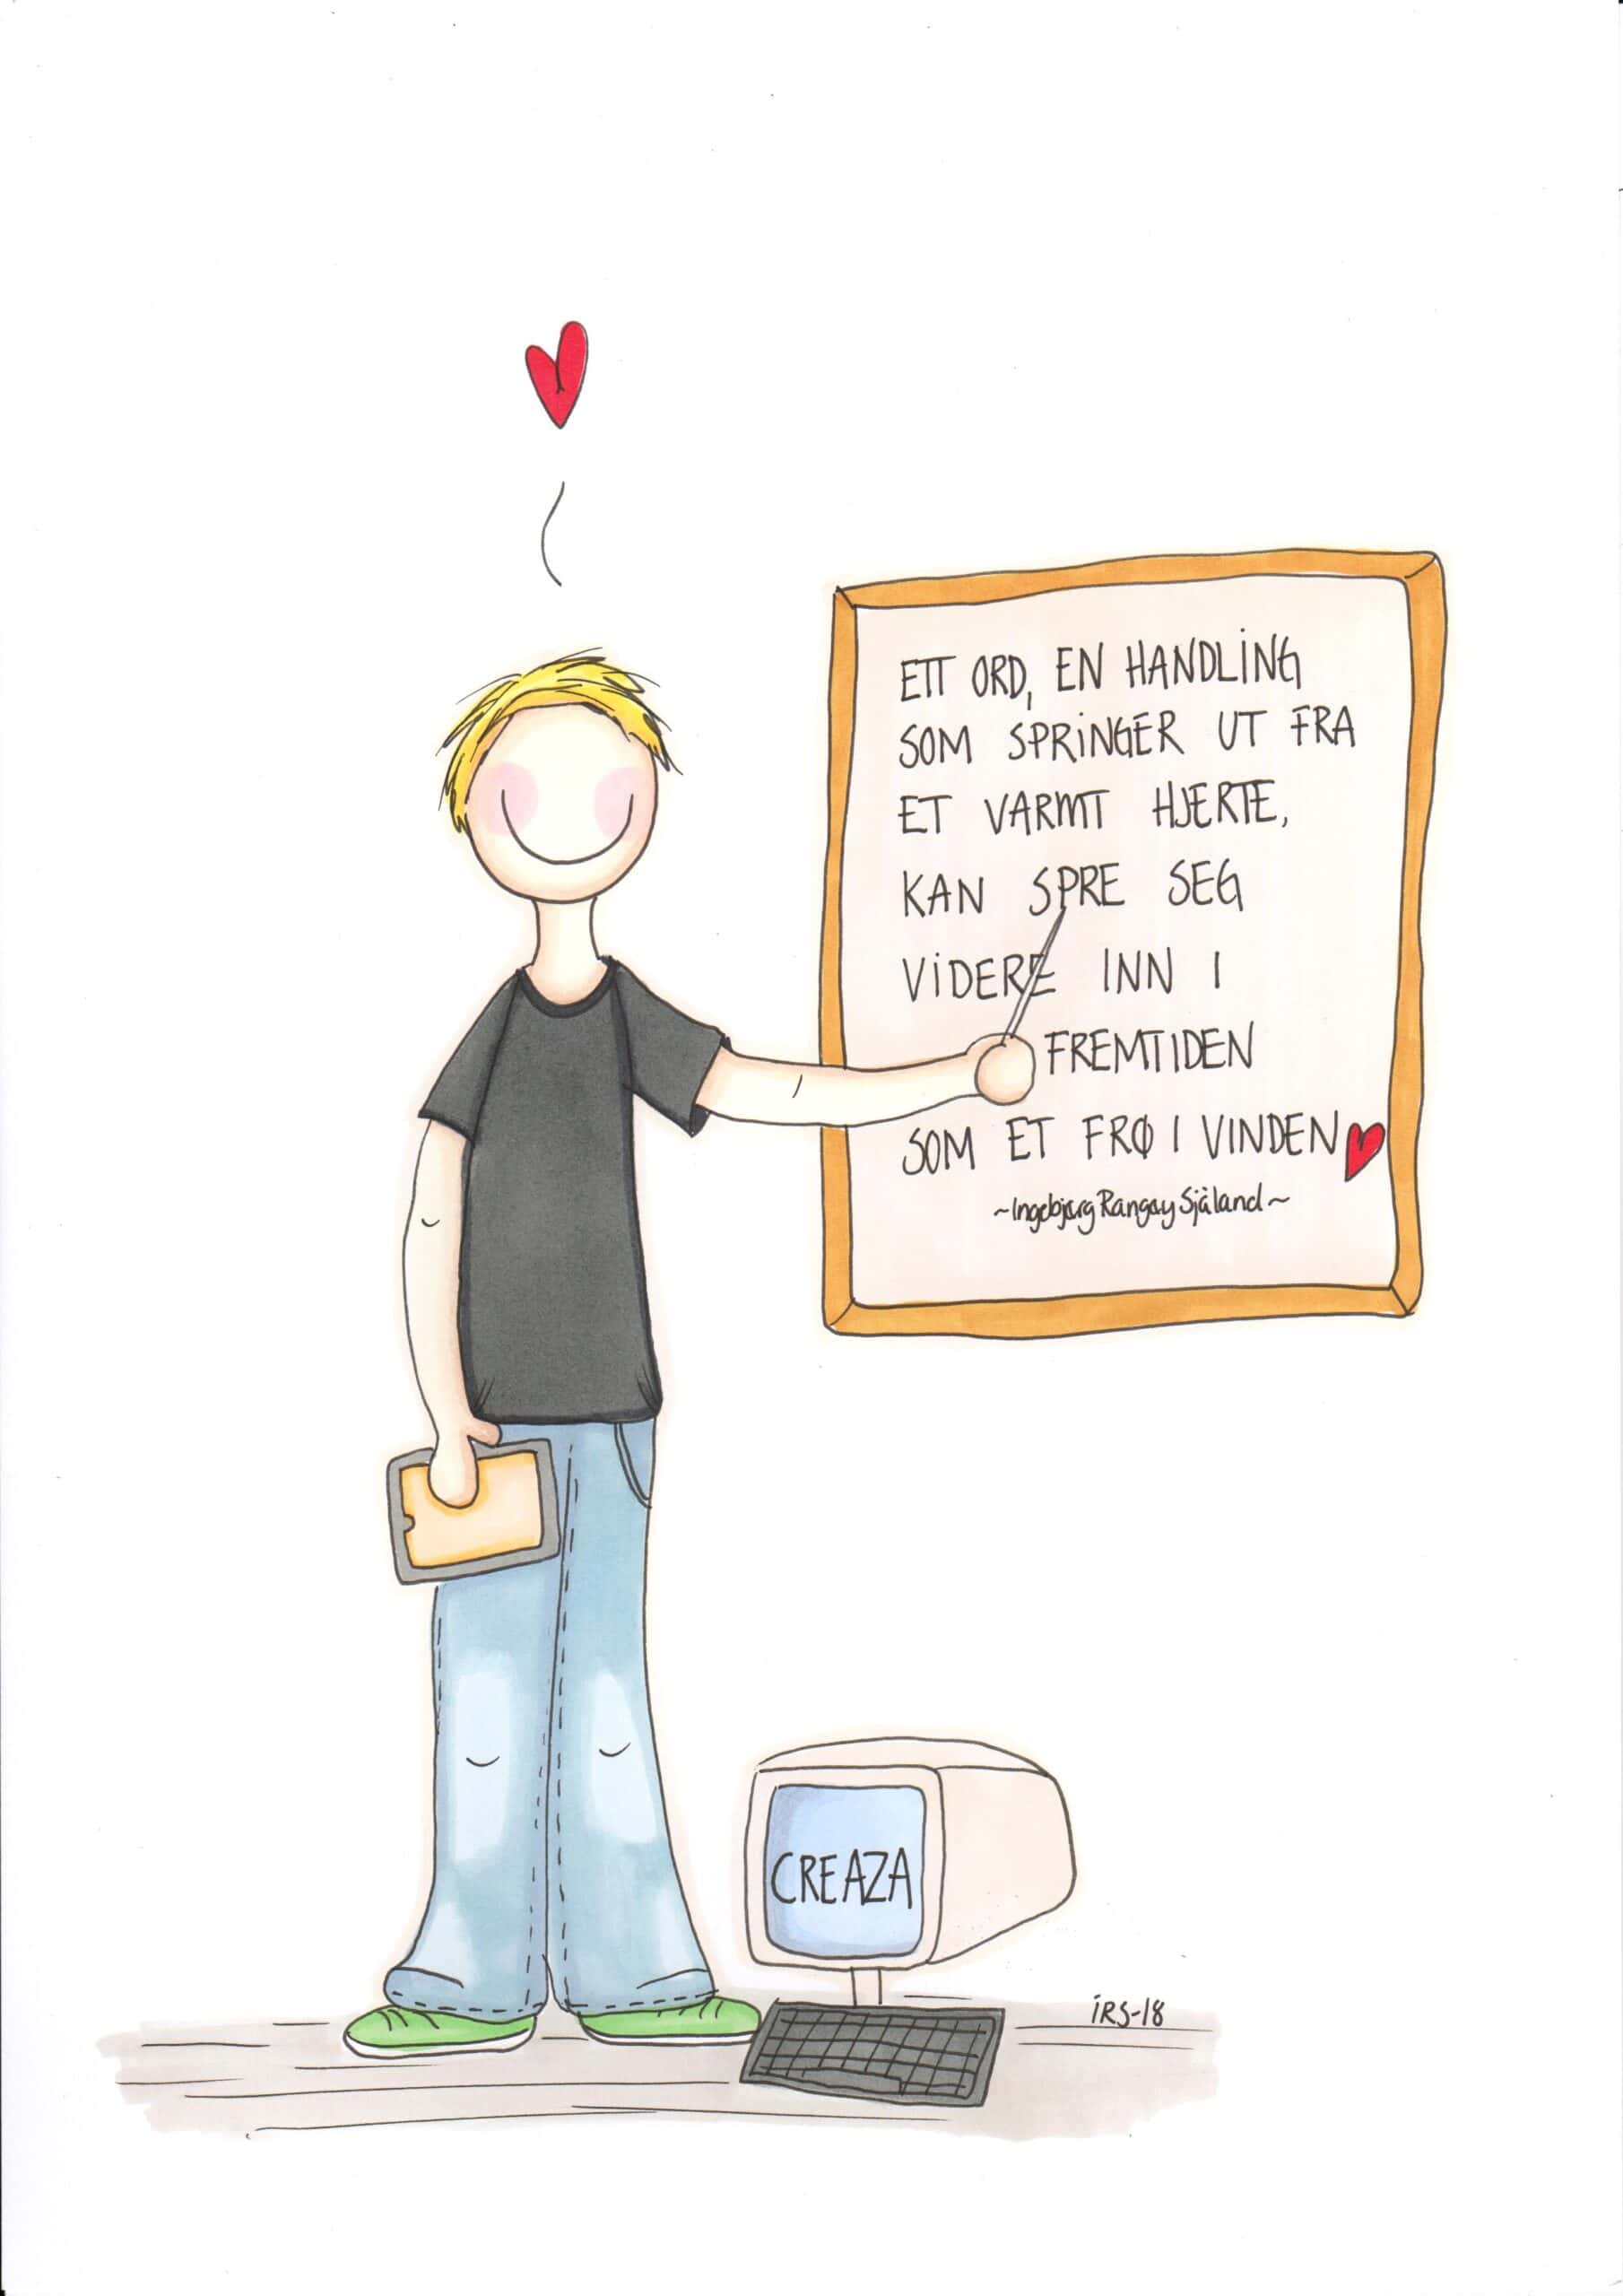 ETT ORD, EN HANDLING
SOM SPRINGER UT FRA
ET VARMT HJERTE,
KAN SPRE SEG
VIDERE INN I
FREMTIDEN
SOM ET FRØ I VINDEN
~Ingebjørg Rangøy Sjåland~
CREAZA
IRS-18